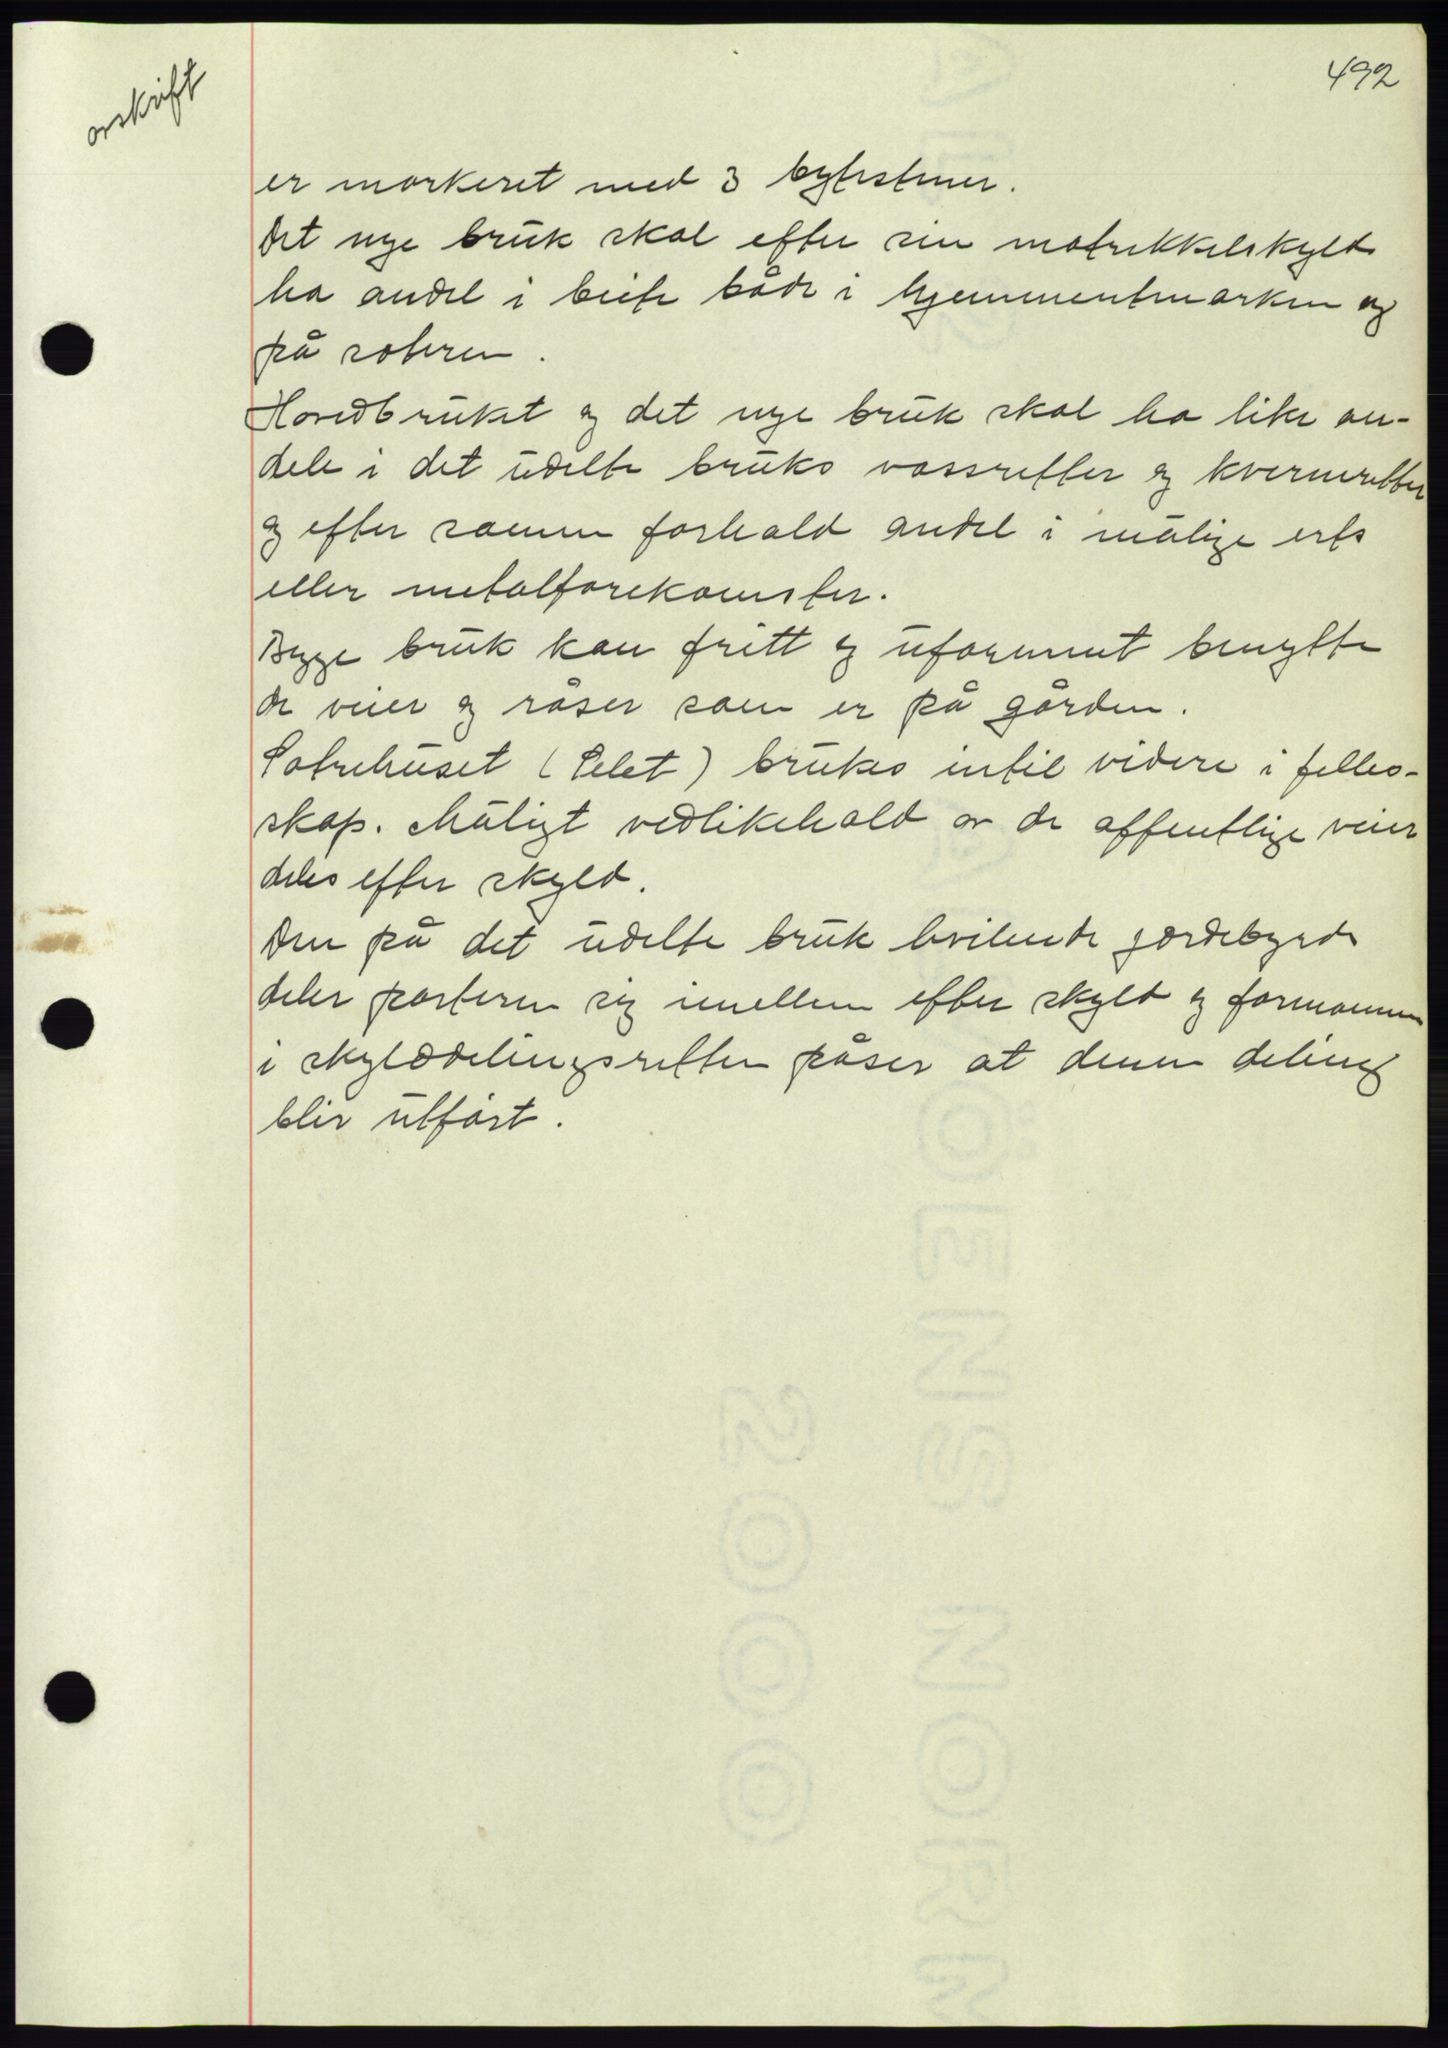 492
avskrift
er markeret med 3 bytestener.
Det nye bruk skal efter sin matrikkelskyld
ha andel i beite både i hjemmeutmarken og
på sæteren.
Hovedbruket og det nye bruk skal ha like an-
dele i det udelte bruks vassretter og kvernretter
og efter samme forhold andel i mulige erts
eller metalforekomster.
Begge bruk kan fritt og uforment benytte
de veier og råser som er på gården.
Sætrehuset (Selet) brukes intil videre i felles-
skap. Muligt vedlikehold av de offentlige veier
deles efter skyld.
Den på det udelte bruk hvilende gjerdebyrde
deler parterne sig imellem efter skyld og formannen
i skylddelingsretten påser at denne deling
blir utført.